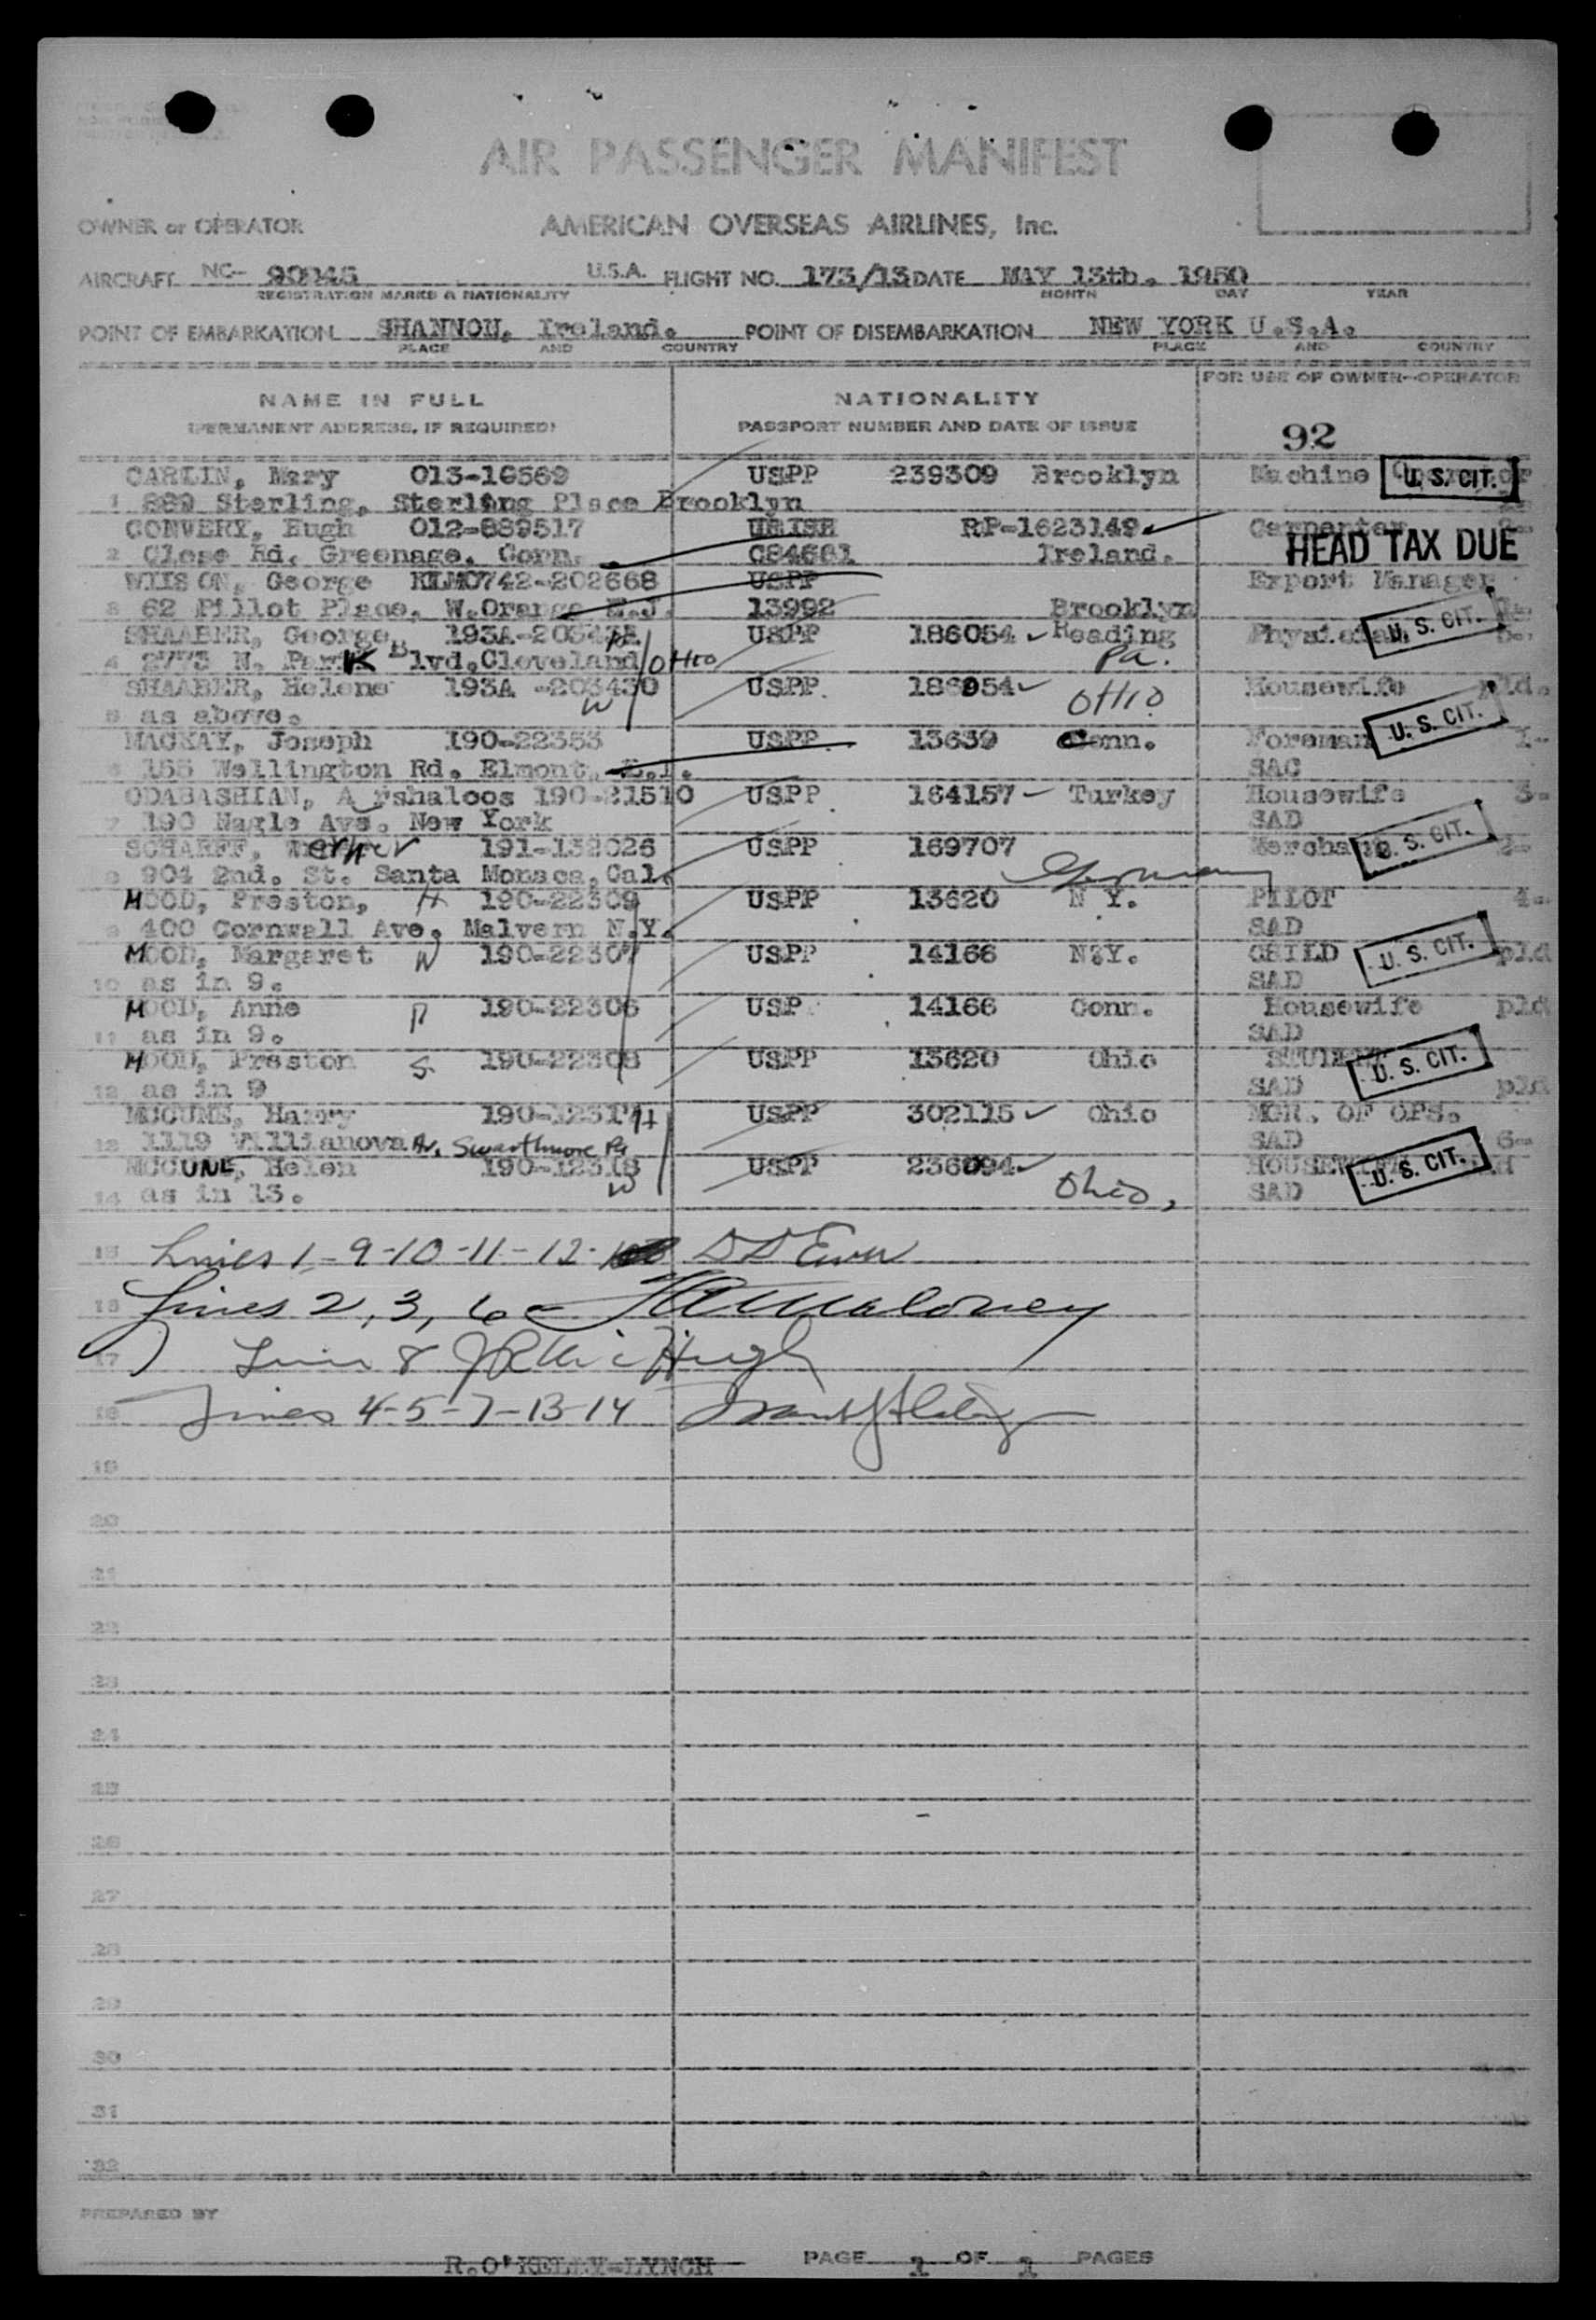 AIR PASSENGER MANIFEST
OWNER or OPERATOR AMERICAN OVERSEAS AIRLINES, Inc.
AIRCRAFT NC- 90945 U.S.A. FLIGHT NO. 173/13 DATE MAY 13th. 1950
REGISTRATION MARKS & NATIONALITY MONTH DAY YEAR
POINT OF EMBARKATION SHANNON, Ireland. POINT OF DISEMBARKATION NEW YORK U.S.A.
PLACE AND COUNTRY PLACE AND COUNTRY
NAME IN FULL NATIONALITY FOR USE OF OWNER-OPERATOR
(PERMANENT ADDRESS, IF REQUIRED) PASSPORT NUMBER AND DATE OF ISSUE 92
CARLIN, Mary 013-16569 USPP 239309 Brooklyn Machine U. S. CIT.
1 889 Sterling, Sterling Place Brooklyn
CONVERY, Hugh 012-889517 IRISH RP-1623149 Carpenter
2 Close Rd. Greenage. Conn. C84661 Ireland. HEAD TAX DUE
WILSON, George KLM0742-202668 USPP Export Manager
3 62 Pillot Place, W.Orange N.J. 13992 Brooklyn
SHAABER, George 193A- USPP 186054 Reading Physician U. S. CIT.
4 2775 N. Park Blvd, Cleveland OHIO Pa.
SHAABER, Helene 193A -203430 W USPP. 186054 OHIO Housewife pld.
5 as above. U. S. CIT.
MACKAY, Joseph 190-22353 USPP. 13639 Conn. Foreman 1-
6 155 Wellington Rd. Elmont, SAC
ODABASHIAN, A rshaloos 190-21510 USPP 164157 Turkey Housewife 3-
7 190 Nagle Ave. New York SAD
SCHARFF, Werner 191-132026 USPP 169707 Germany Merchant U. S. CIT.
8 904 2nd. St. Santa Monaca, Cal.
MOOD, Preston, H 190-22309 USPP 13620 N Y. PILOT 4-
9 400 Cornwall Ave, Malvern N.Y. SAD
MOOD, Margaret W 190-22307 USPP 14166 N.Y. CHILD U. S. CIT. pld
10 as in 9. SAD
MOOD, Anne D 190-22306 USP 14166 Conn. Housewife pld
11 as in 9. SAD
MOOD, Preston S 190-22308 USPP 13620 Ohio STUDENT U. S. CIT.
12 as in 9 SAD pld
MCCUNE, Harry H USPP 302115 Ohio MGR. OF OPS.
13 1119 Villianova Av, Swarthmore Pa SAD 6-
MCCUNE, Helen 190-12318 W USPP 236094 Ohio, HOUSEWIFE U. S. CIT.
14 as in 13. SAD
15 Lines 1-9-10-11-12-
16 Lines 2, 3, 6 Maloney
17 Line 8
18 Lines 4-5-7-13-14
19
20
21
22
23
24
25
26
27
28
29
30
31
32
PREPARED BY
R.O'KELLY-LYNCH PAGE 1 OF 1 PAGES